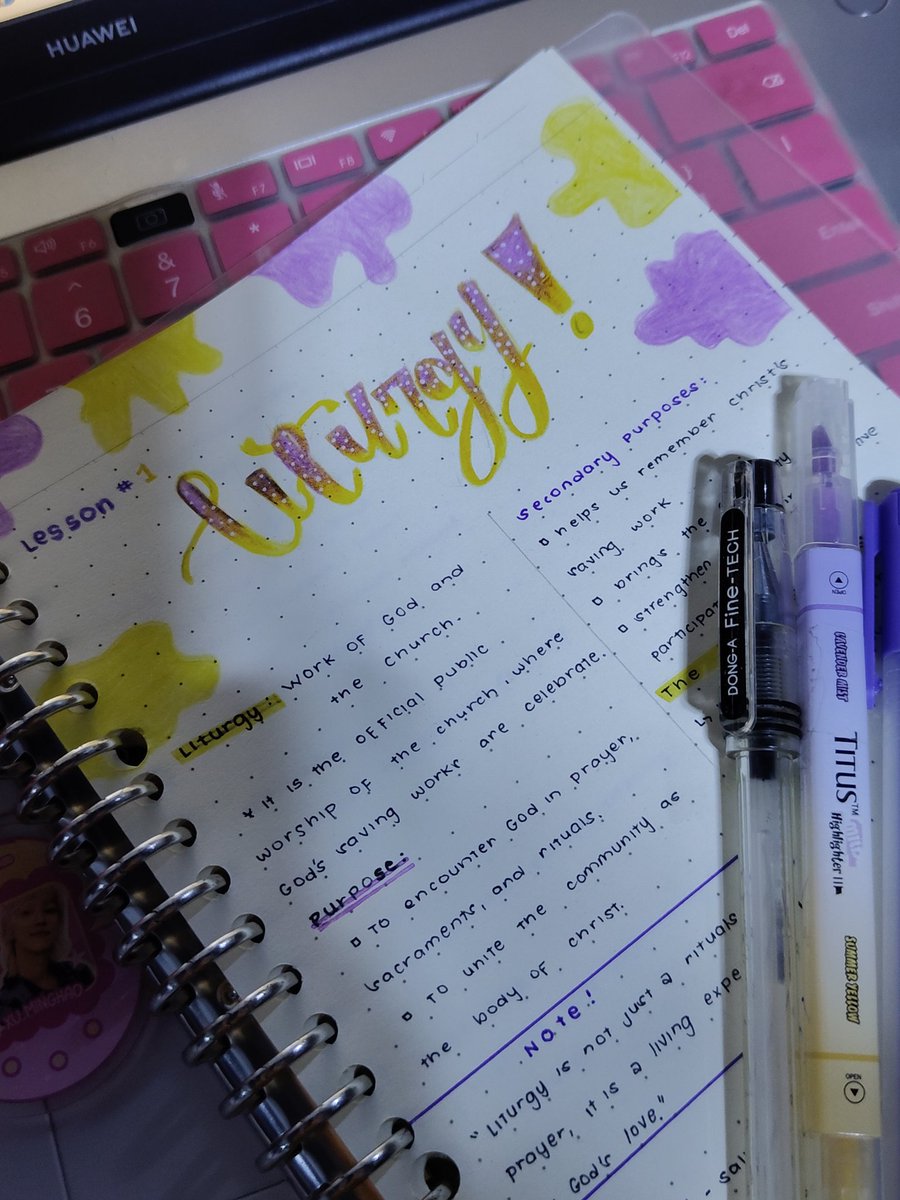 HUAWEI
Del
F12
F8
F7
F6
*
&
7
^
6
Enter
Shift
Lesson #1
Liturgy!
Liturgy: Work of God and
the church.
* It is the official public
worship of the church, where
God's saving works are celebrate.
Purpose:
To encounter God in prayer,
sacraments, and rituals.
To unite the community as
the body of Christ.
Secondary Purposes:
helps us remember christ's
saving work
brings the
strengthen
participat
The
Note!
"Liturgy is not just a rituals
prayer, it is a living expe
God's love."
- sai
XU MINGHAO
DONG-A Fine-TECH
OPEN
LAVENDER MIST
TITUS™
Highlighter
SUMMER YELLOW
OPEN